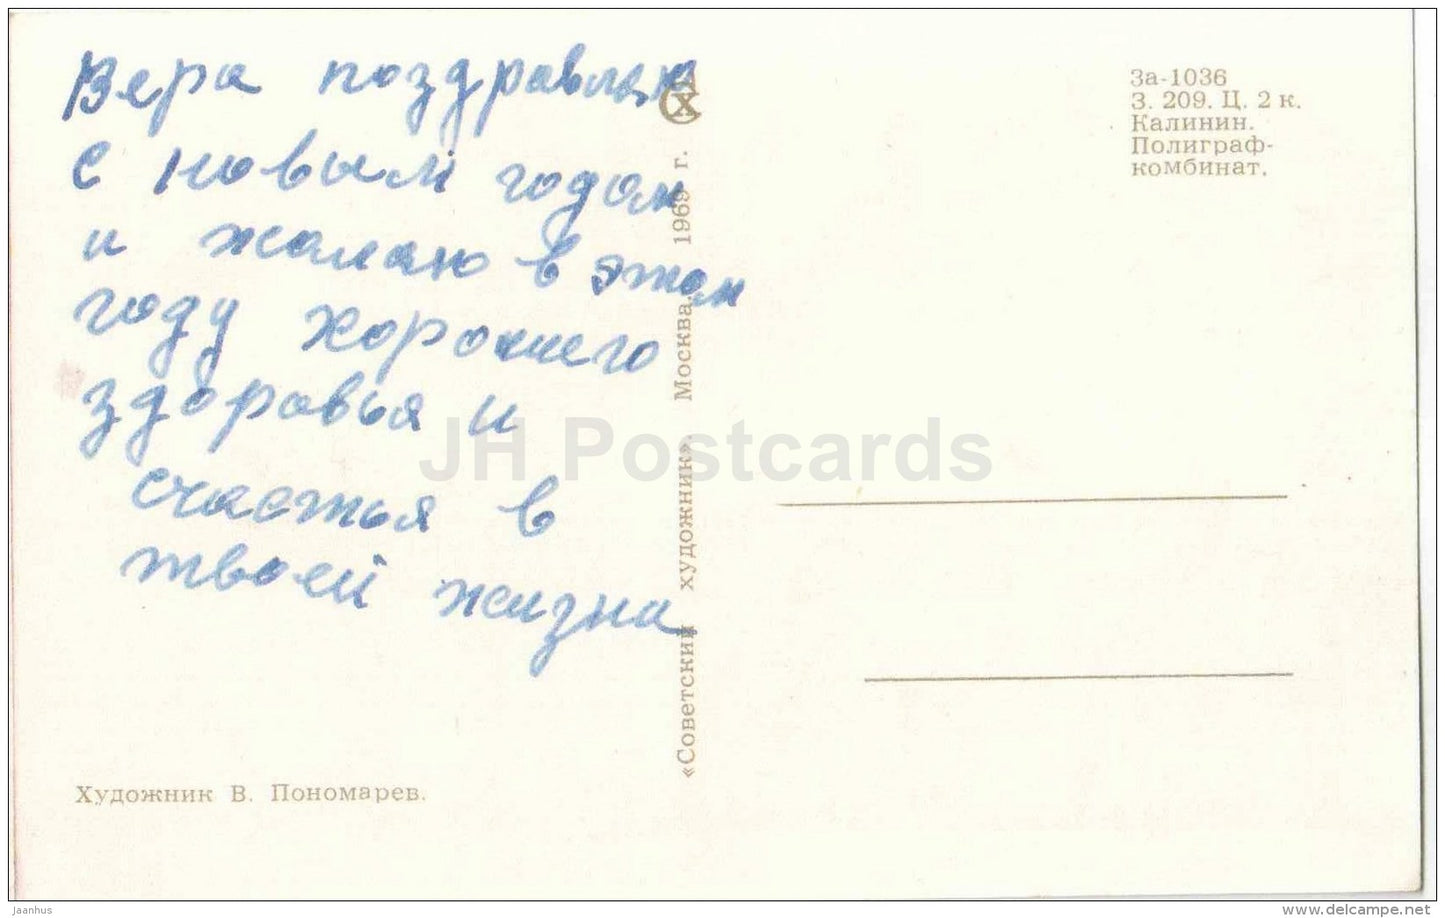 Вера поздравляю
с новым годом
и желаю в этом
году хорошего
здоровья и
счастья в
твоей жизни
Художник В. Пономарев.
«Советский художник». Москва. 1969 г.
За-1036
З. 209. Ц. 2 к.
Калинин.
Полиграф-
комбинат.
JH Postcards
jaanhus
www.delcampe.net